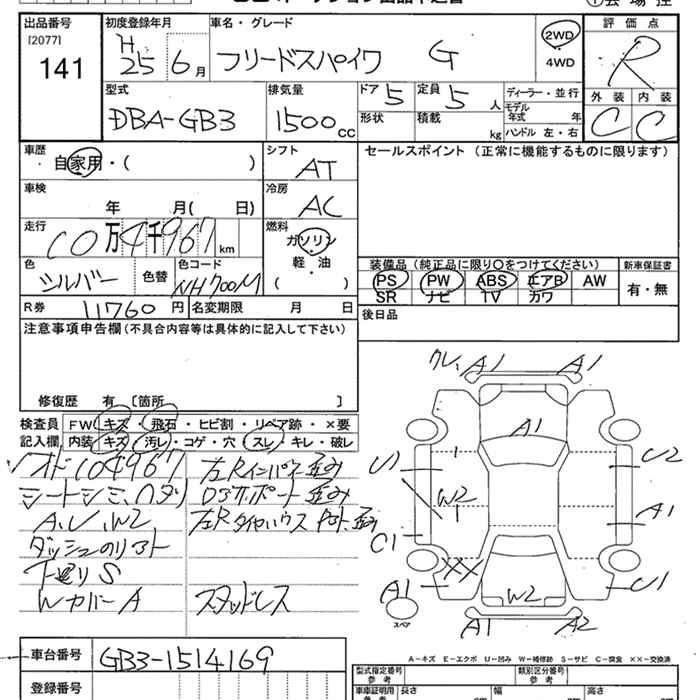 出品番号
[2077]
141
初度登録年月
H25 6月
車名・グレード
フリードスパイク G
2WD
4WD
評価点
R
外装 内装
C C
型式
DBA-GB3
排気量
1500cc
ドア
5
定員
5人
形状
積載
kg
ディーラー・並行
モデル年式 年
ハンドル 左・右
車歴
自家用・( )
シフト
AT
セールスポイント (正常に機能するものに限ります)
車検
年 月( 日)
冷房
AC
走行
10万4千967km
燃料
ガソリン
軽・油
( )
色
シルバー
色替
色コード
NH700M
装備品 (純正品に限り○をつけてください)
新車保証書
PS PW ABS エアB AW
SR ナビ TV カワ
有・無
R券 11760円
名変期限 月 日
後日品
注意事項申告欄(不具合内容等は具体的に記入して下さい)
修復歴 有 〔箇所 〕
検査員記入欄
FW キズ・飛石・ヒビ割・リペア跡・×要
内装 キズ・汚レ・コゲ・穴・スレ・キレ・破レ
104967
シートシミ、
A、U、W2
下廻りS
WカバーA
スタッドレス
A1 A1
A1
U1 U2
W2
A1
C1
XX
A1
スペア
W2
U1
A1 A2
A-キズ E-エクボ U-凹み W-補修跡 S-サビ C-腐食 XX-交換済
車台番号
GB3-1514169
登録番号
型式指定番号
参考
類別区分番号
参考
車車証明用
長さ
幅
高さ